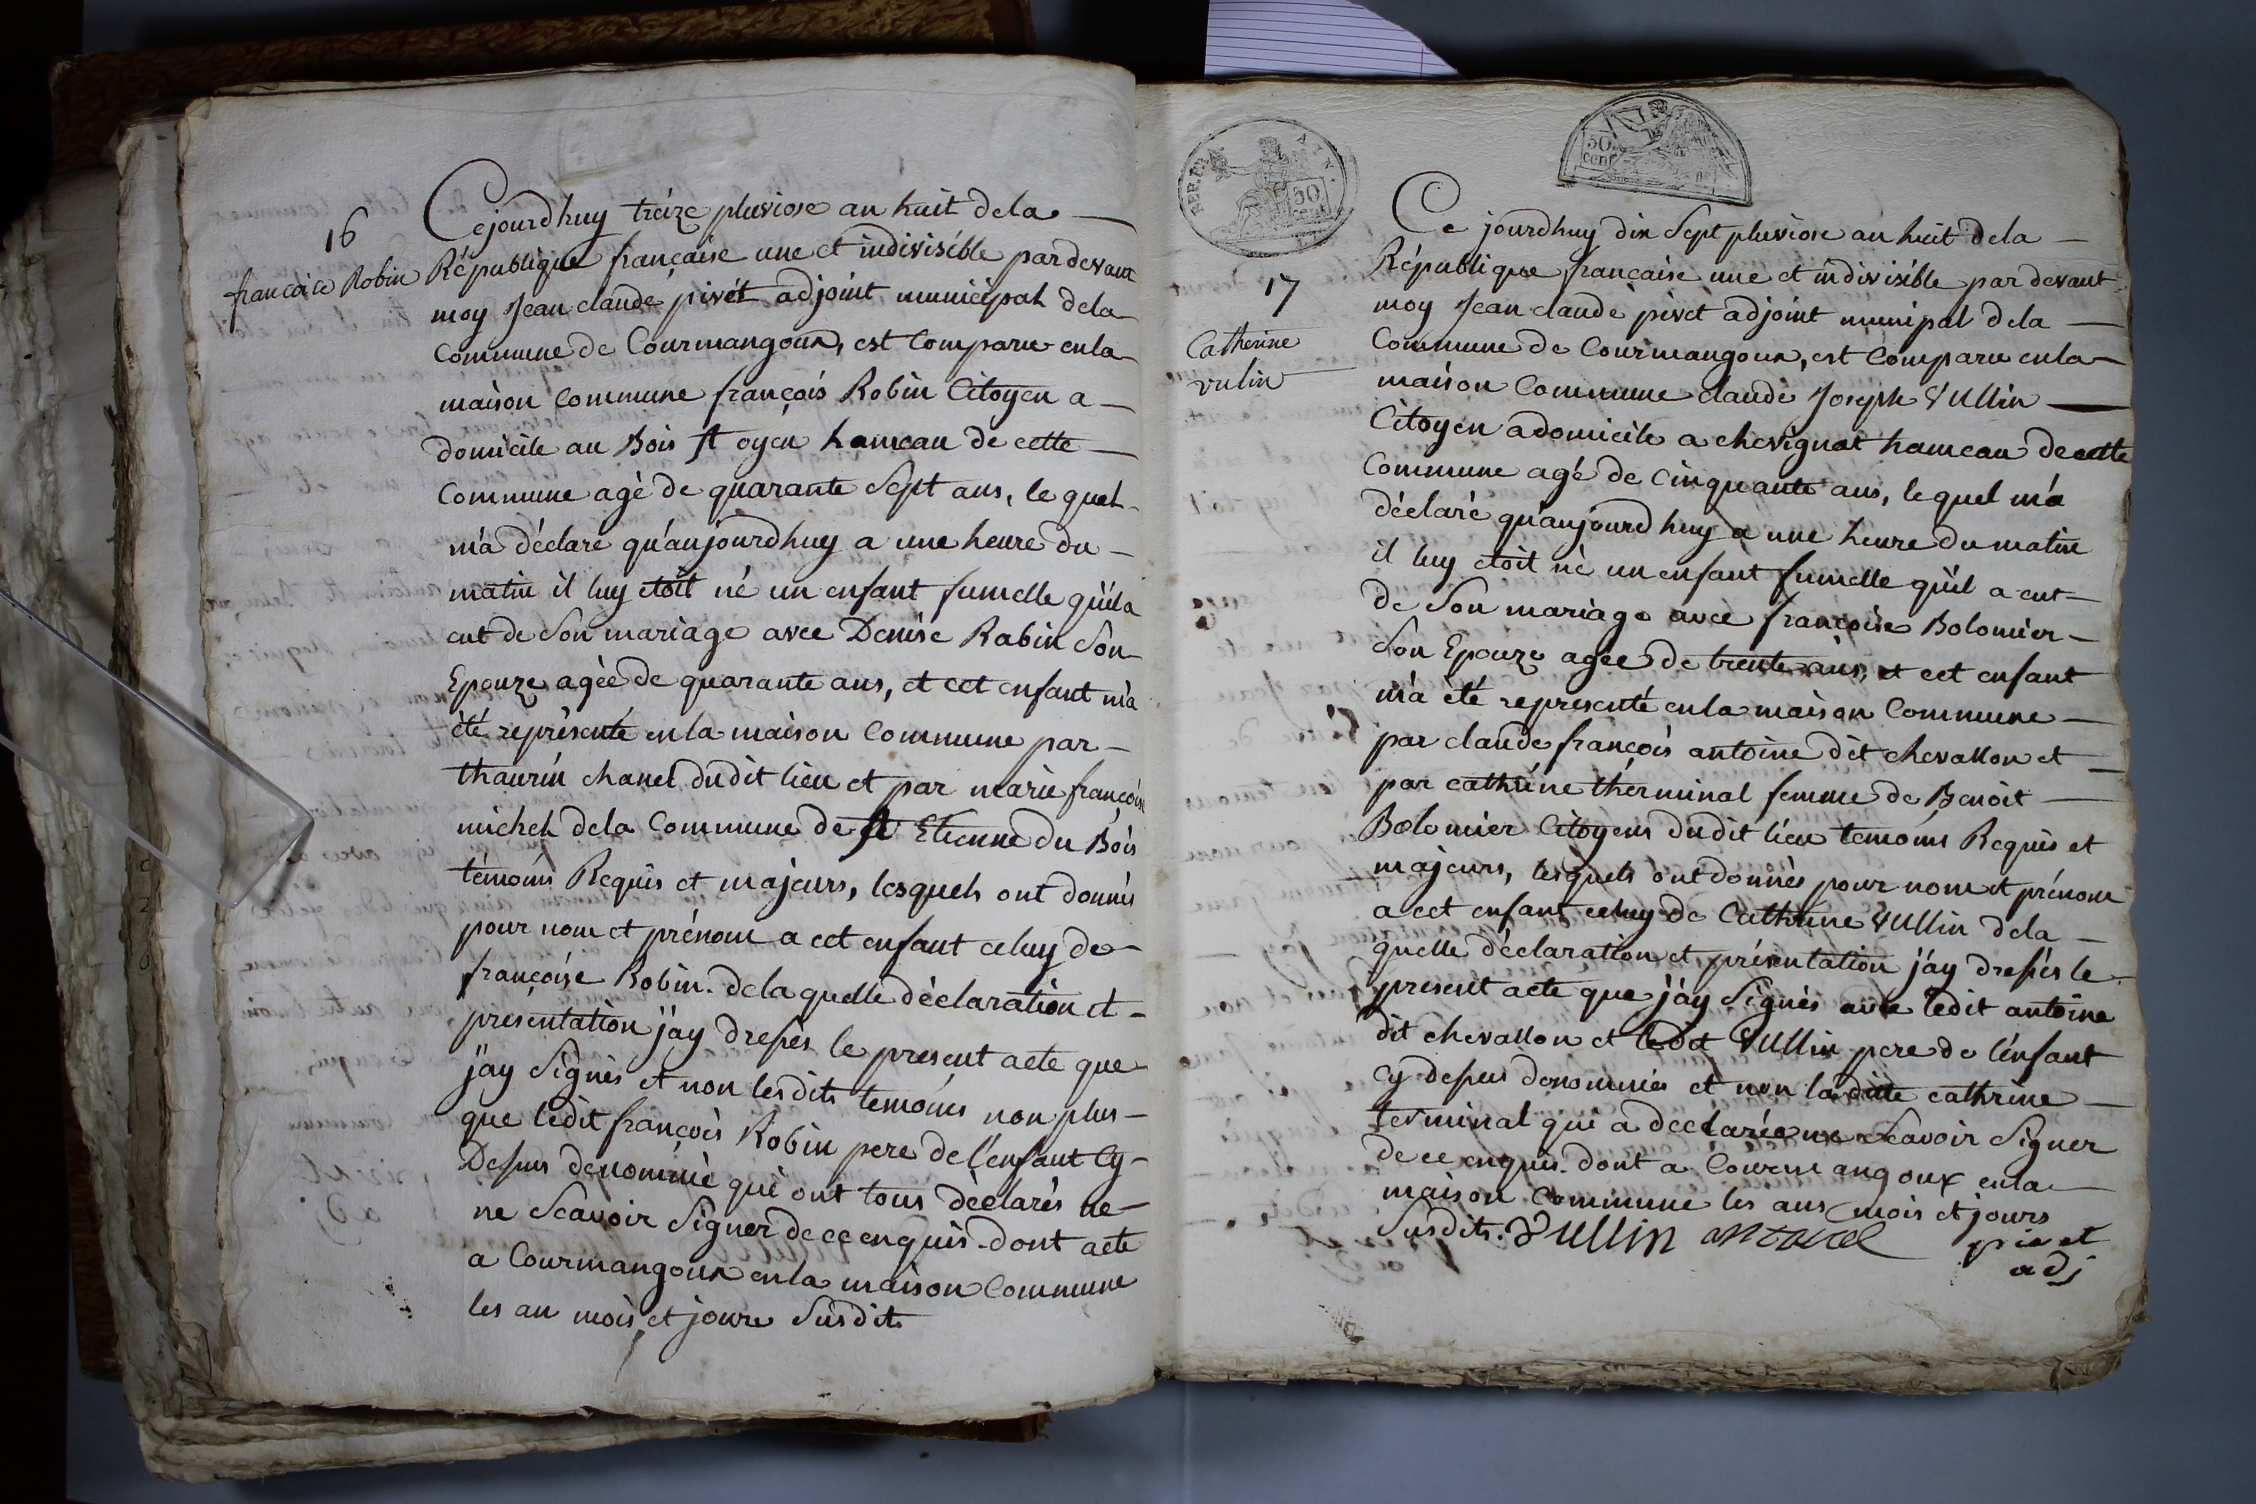 16
francoise Robin
Cejourdhuy treize pluviose an huit dela
République française une et indivisible pardevant
moy Jean claude pivét adjoint municipal dela
Commune de Courmangoux, est Comparu enla
maison Commune françois Robin Citoyen a
domicile au Bois st oyen hameau de cette
Commune agè de quarante Sept ans, le quel
m'a déclaré qu'aujourdhuy a une heure du
matin il luy etoit né un enfant fumelle qu'il a
eut de Son mariage avec Denise Rabin Son
Epouze agèe de quarante ans, et cet enfant m'a
été représenté enla maison Commune par
thaurin chanel dudit lieu et par marie françoise
michel dela Commune de st Etienne du Bois
témoins Requis et majeurs, lesquels ont donnés
pour nom et prénom a cet enfant celuy de
françoise Robin. dela quelle déclaration et
présentation j'ay dressés le present acte que
j'ay Signés et non lesdits temoins non plus
que ledit françois Robin pere de l'enfant Cy
Dessus denommé qui ont tous déclarés ne
ne Scavoir Signer de ce enquis. dont acte
a Courmangoux enla maison Commune
les an mois et jours Susdits
REP. FRA. 50 cent
50 cent
17
Catherine
vulin
Ce jourdhuy dix Sept pluviose an huit dela
République française une et indivisible par devant
moy Jean claude pivet adjoint munipal dela
Commune de Courmangoux, est Comparu enla
maison Commune claude Joseph Vullin
Citoyen adomicile a chevignat hameau decette
Commune agé de Cinquante ans, lequel m'a
déclaré qu'aujourdhuy a une heure du matin
il luy etoit né un enfant fumelle qu'il a eut
de Son mariage avec françoise Bolomier
Son Epouze agee de trente ans, et cet enfant
m'a été representé enla maison Commune
par claude françois antoine dit chevallon et
par cathrine therminal femme de Benoit
Bolomier Citoyens dudit lieu temoins Requis et
majeurs, lesquels ont donnés pour nom et prénom
a cet enfant celuy de Cathrine Vullin dela
quelle déclaration et présentation j'ay dressés le
present acte que j'ay Signés avec ledit antoine
dit chevallon et ledit Vullin pere de l'enfant
cy dessus denommés et non la ditte cathrine
terminal qui a declarée ne Scavoir Signer
de ce enquis. dont a Courmangoux enla
maison Commune les ans mois et jours
Susdits. Vullin antoine pivet
adj